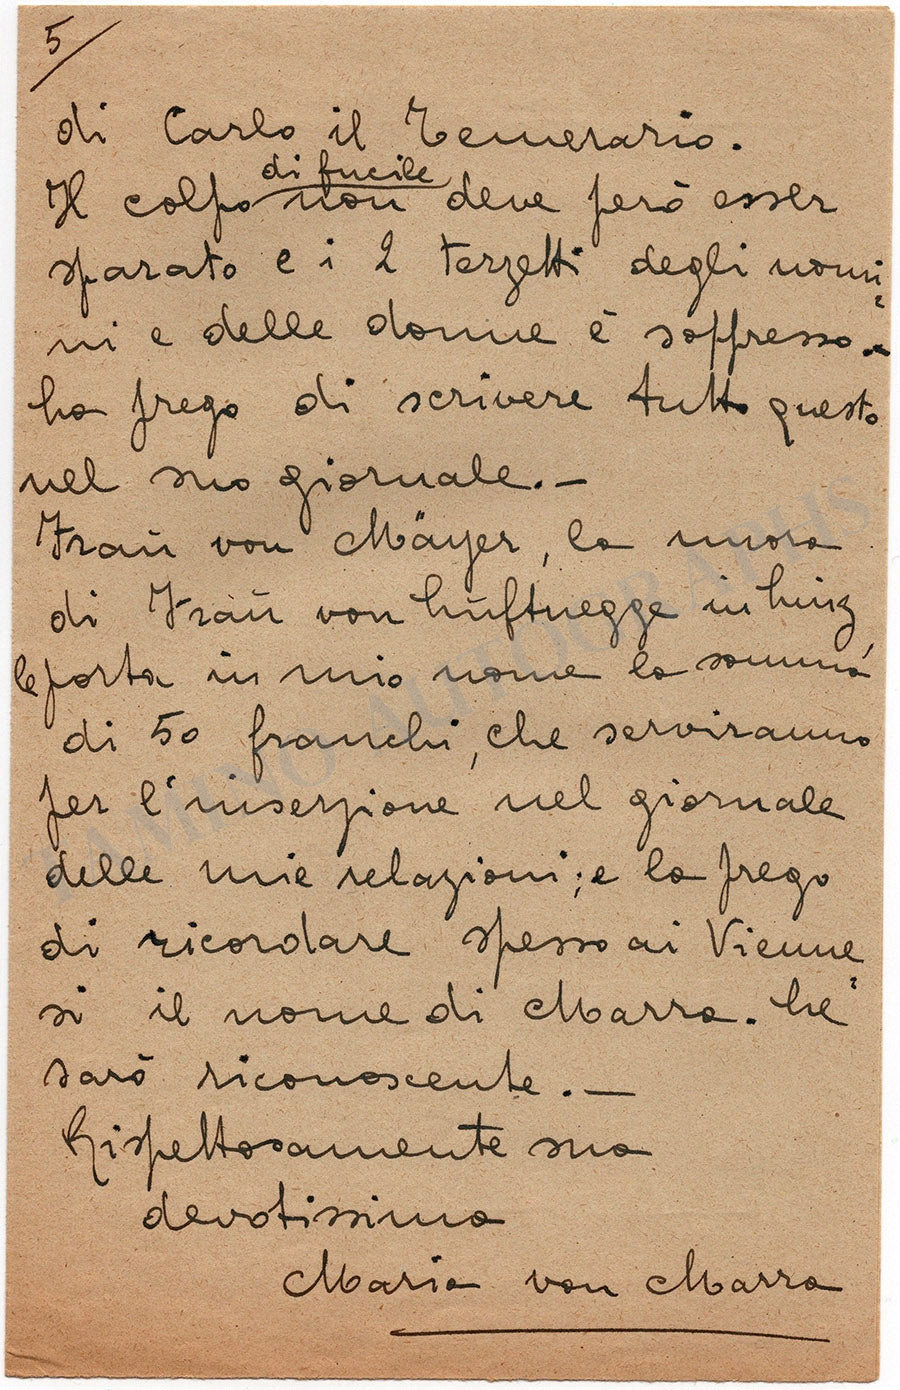 5
di Carlo il Temerario.
di fucile
Il colpo non deve però esser
sparato e i 2 terzetti degli uomi-
ni e delle donne è soppresso.-
La prego di scrivere tutto questo
nel suo giornale.—
Fraŭ von Mäyer, la nuora
di Fraŭ von in Linz,
le porta in mio nome la somma
di 50 franchi, che serviranno
per l'inserzione nel giornale
delle mie relazioni; e la prego
di ricordare spesso ai Vienne-
si il nome di Marra. Le
sarò riconoscente.—
Rispettosamente sua
devotissima
Maria von Marra
TAMINO AUTOGRAPHS